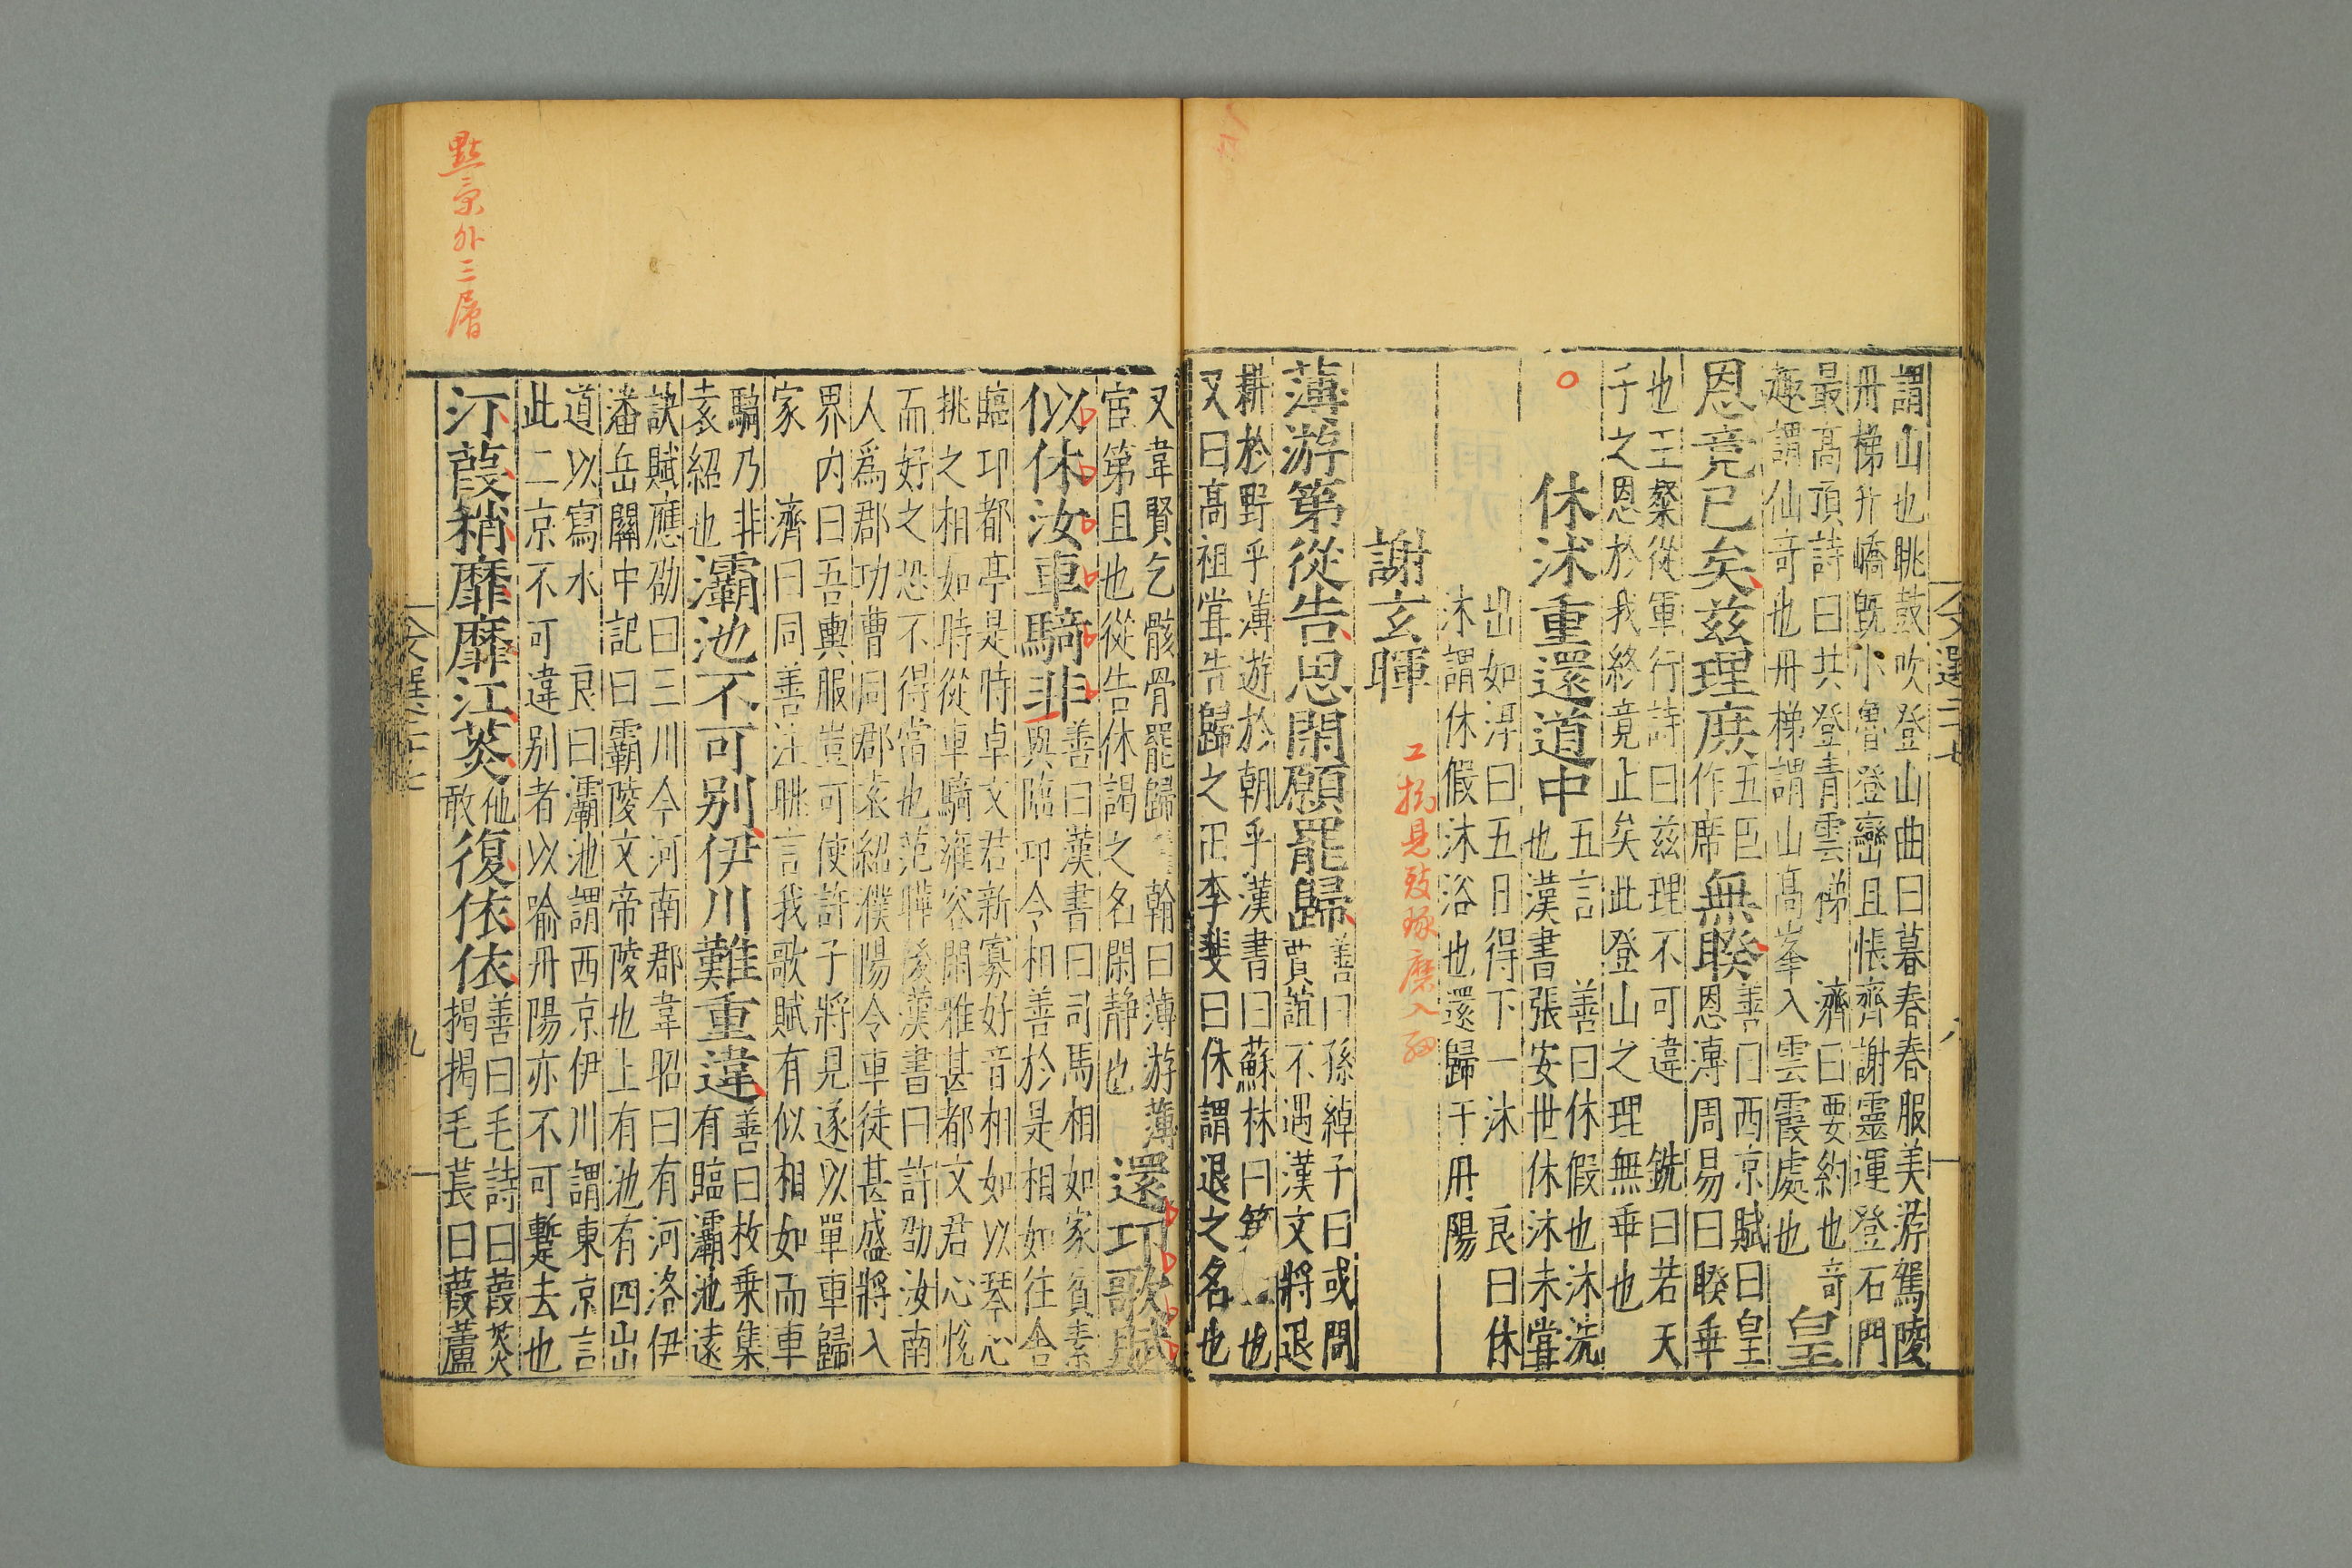 謂山也眺鼓吹登山曲曰暮春春服美游駕陵
丹梯升嶠既小魯登巒且悵齊謝靈運登石門
最高頂詩曰共登青雲梯 濟曰要約也奇
趣謂仙奇也丹梯謂山高峯入雲霞處也
皇
恩竟已矣茲理庶
五臣
作席
無睽
善曰西京賦曰皇
恩溥周易曰睽乖
也王粲從軍行詩曰茲理不可違 銑曰若天
子之恩於我終竟止矣此登山之理無乖也
休沐重還道中
五言 善曰休假也沐洗
也漢書張安世休沐未嘗
出如淳曰五日得下一沐 良曰休
沐謂休假沐浴也還歸于丹陽
謝玄暉
薄游第從告思閑願罷歸
善曰孫綽子曰或問
賈誼不遇漢文將退
耕於野乎薄遊於朝乎漢書曰蘇林曰第也
又曰高祖嘗告歸之田李斐曰休謂退之名也
又韋賢乞骸骨罷歸 翰曰薄游薄
宦第且也從告休謁之名閑静也
還卭歌賦
似休汝車騎非
善曰漢書曰司馬相如家貧素
與臨卭令相善於是相如往舍
臨卭都亭是時卓文君新寡好音相如以琴心
挑之相如時從車騎雍容閑雅甚都文君心恱
而好之恐不得當也范曄後漢書曰許劭汝南
人爲郡功曹同郡袁紹濮陽令車徒甚盛將入
界内曰吾輿服豈可使許子將見遂以單車歸
家 濟曰同善注眺言我歌賦有似相如而車
騎乃非
袁紹也
灞池不可别伊川難重違
善曰枚乗集
有臨灞池遠
訣賦應劭曰三川今河南郡韋昭曰有河洛伊
潘岳關中記曰霸陵文帝陵也上有池有四出
道以寫水 良曰灞池謂西京伊川謂東京言
此二京不可違别者以喻丹陽亦不可暫去也
汀葭稍靡靡江菼
他
敢
復依依
善曰毛詩曰葭菼
揭揭毛萇曰葭蘆
文選二十七
八
文選二十七
九
點景外三層
入細